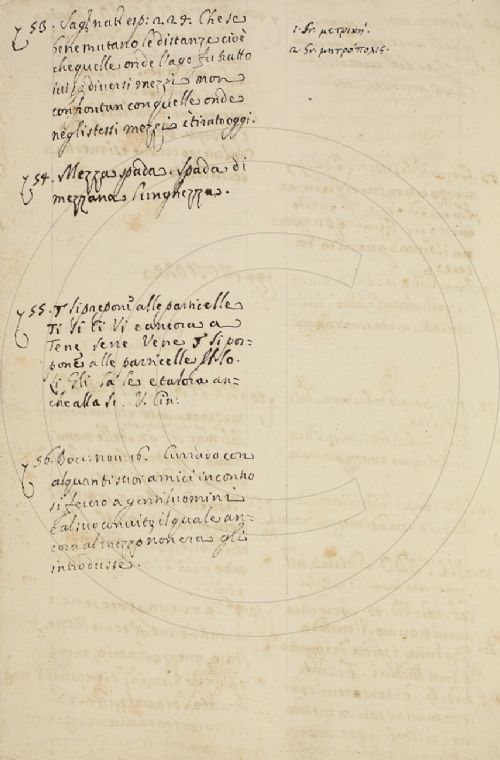 53. Sag. nat. esp: 224. Che se
bene mutano le distanze cioè
che quelle onde l'ago fu tratto
ivi di diversi mezzi non
confrontan con quelle onde
negli stessi mezzi è tirato oggi.
54. Mezza spada. Spada di
mezzana lunghezza.
55. si prepone alle particelle
Ti Si Ci Vi e ancora a
Tene sene Vene si pos-
pone alle particelle Il Lo
Li Gli La Le e talora an-
che alla Si. V. Cin:
56. Bocc: nov. 16. Currado con
alquanti suoi amici incontro
si fecero a gentiluomini
e al suo convito il quale an-
cora al mezzo non era gli
introdusse.
1. Gr. μετρική.
2. Gr. μητρόπολις.